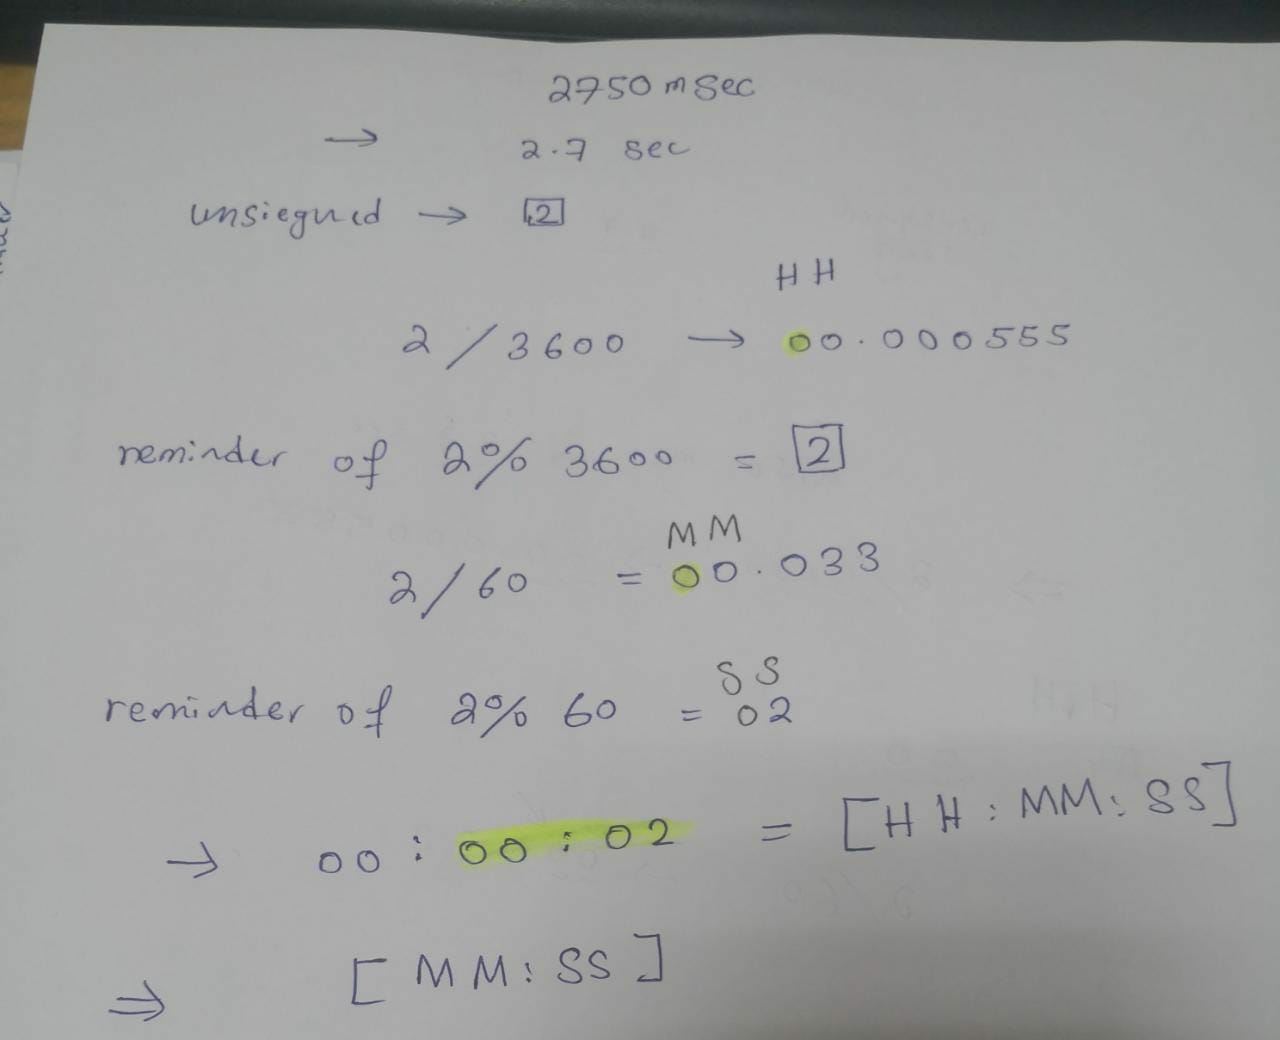 2750 mSec
→ 2.7 sec
unsiegned → 2
HH
2/3600 → 00.000555
reminder of 2% 3600 = 2
MM
2/60 = 00.033
SS
reminder of 2% 60 = 02
→ 00:00:02 = [HH:MM:SS]
⇒ [MM:SS]